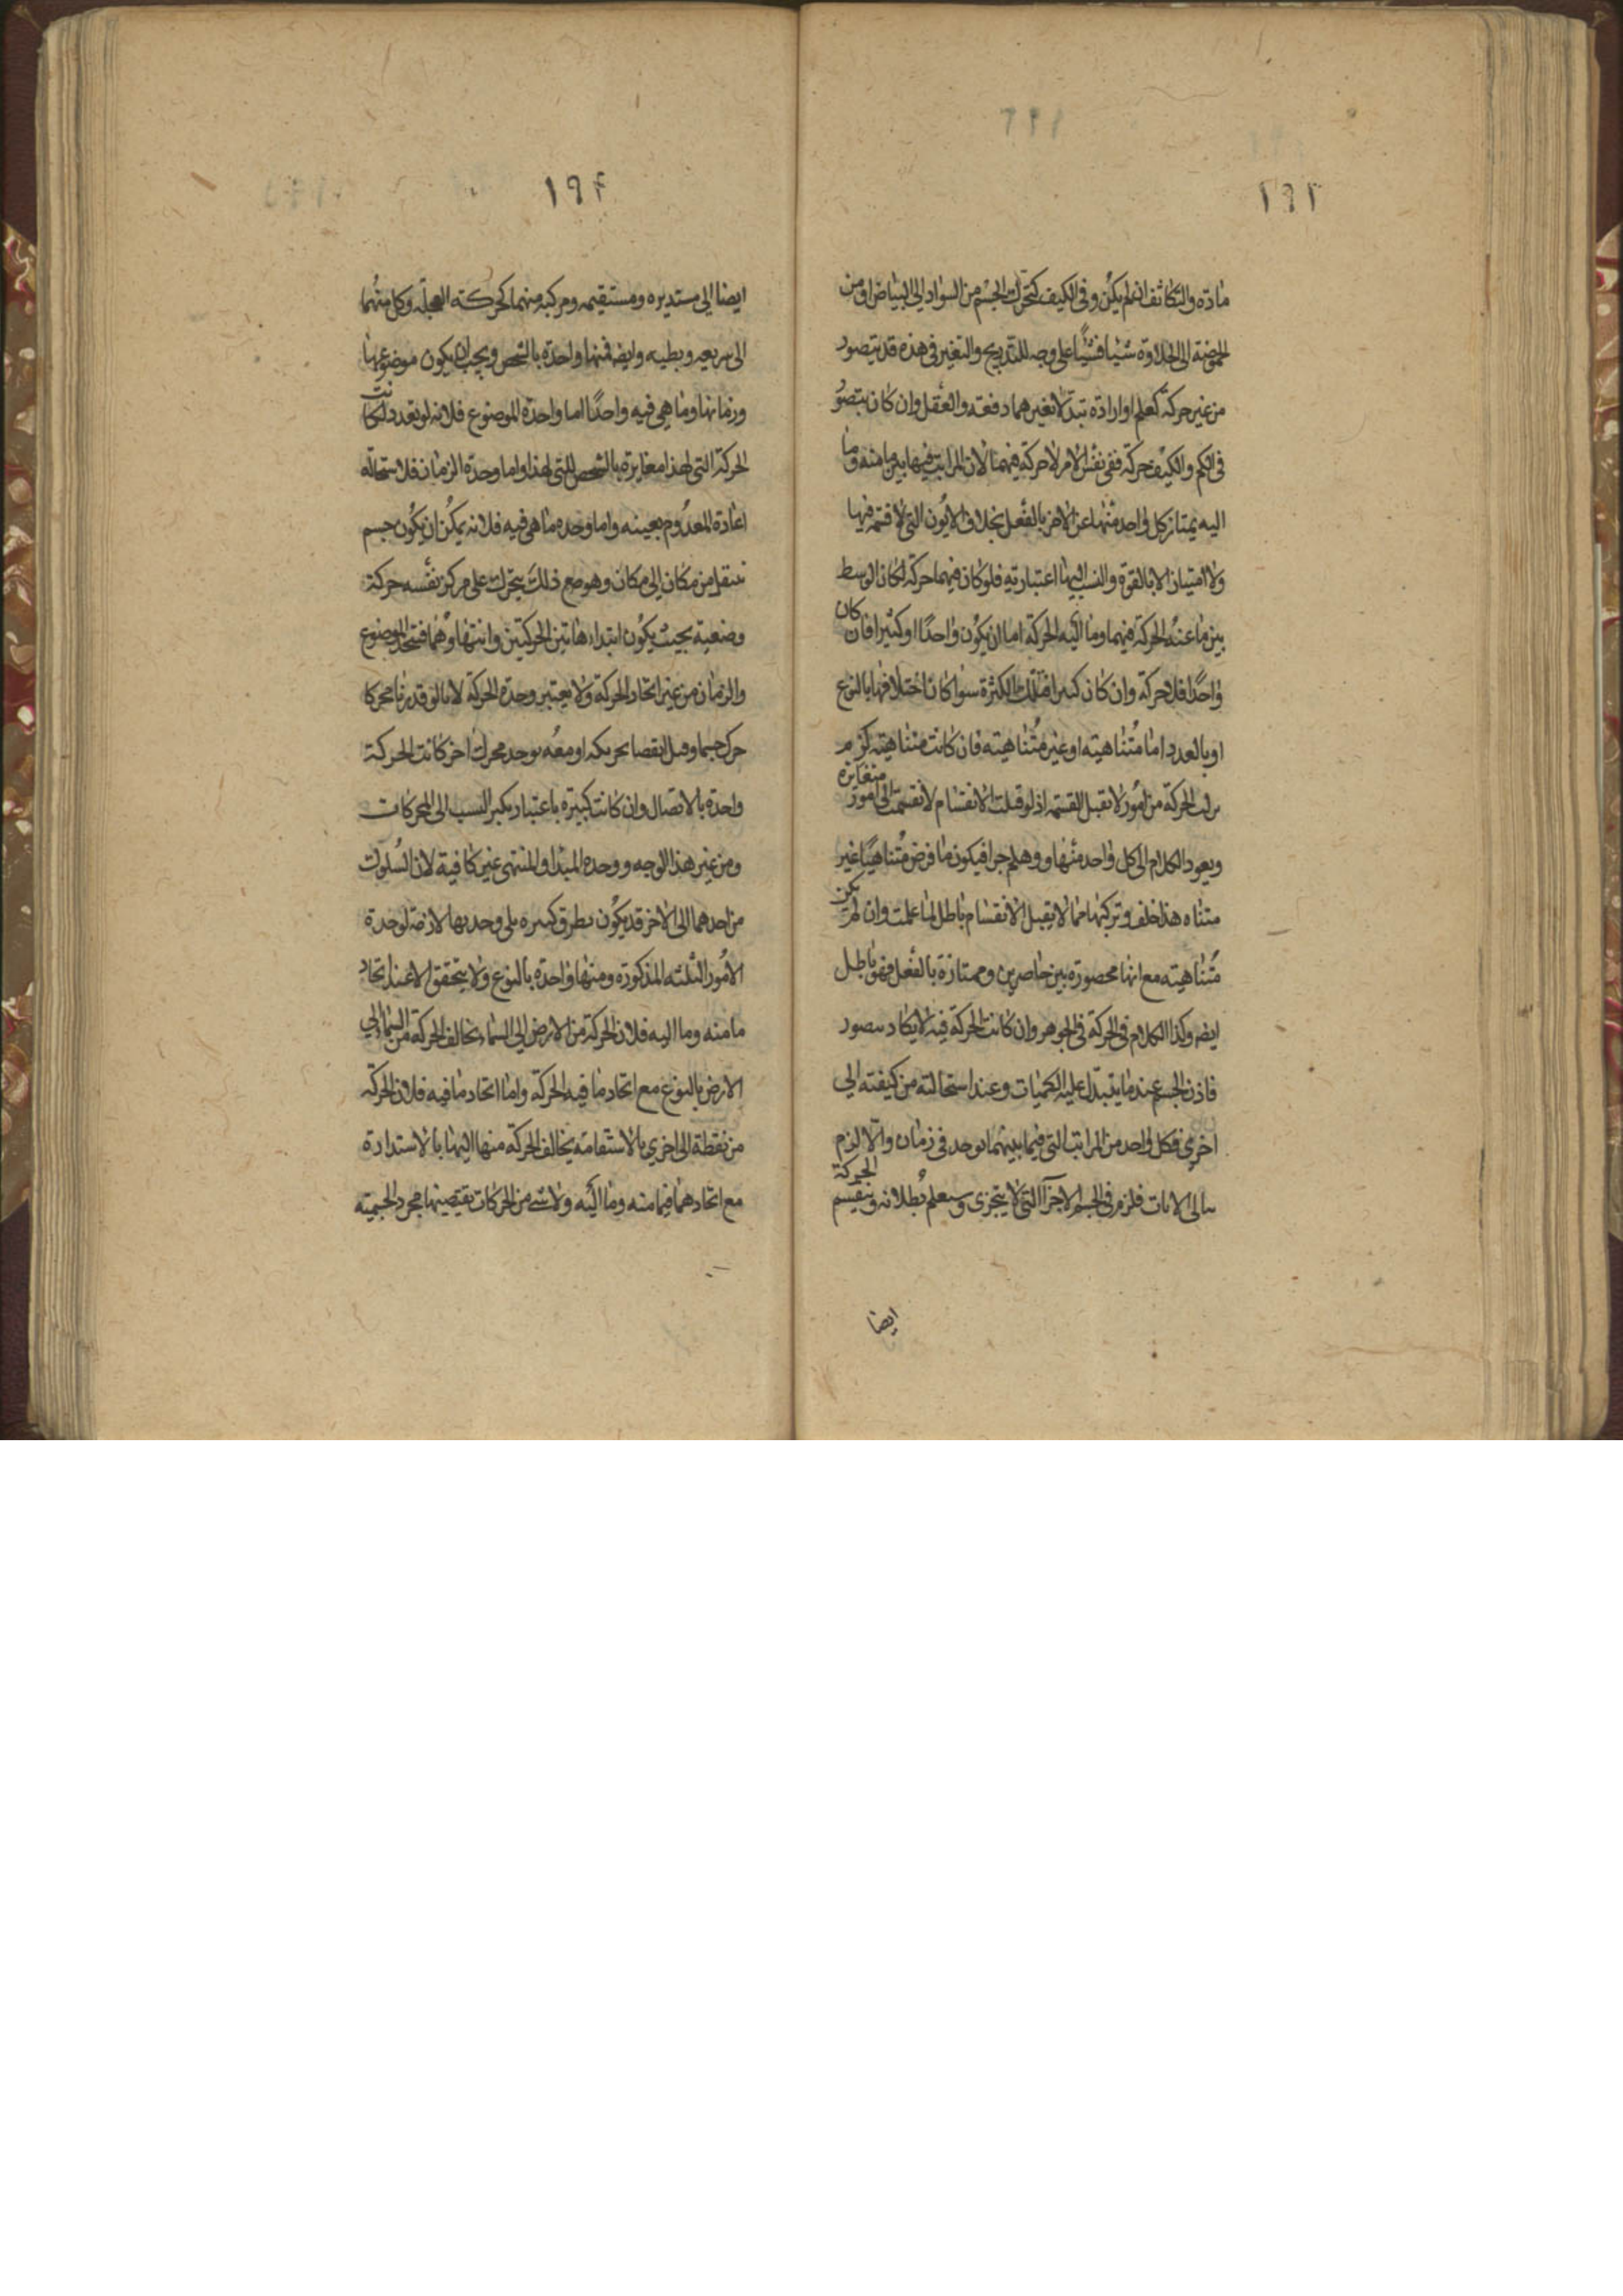 ١٩٣
مادته والتكاثف ان لم يكن وفى الكيف كتحرك الجسم من السواد الى البياض او من
الحموضة الى الحلاوة شيئا فشيئا على وجه التدريج والتغير فى هذه قد يتصور
من غير حركة كعلم او ارادة تبدلا تغيرهما دفعته والعقل وان كان يتصور
فى الكم والكيف حركة ففى نفس الامر لا حركة فيهما لان المراتب فيها بين ما منه وما
اليه يمتاز كل واحد منها عن الاخر بالفعل بخلاف الايون التى لا قسمة فيها
ولا امتياز الا بالقوة والنسب اليها اعتبارية فلو كان فيهما حركة لكان الوسط
بين ما عنه الحركة فيهما وما اليه الحركة اما ان يكون واحدا او كثيرا فان كان
واحدا فلا حركة وان كان كثيرا فتلك الكثرة سوا كان اختلافها بالنوع
او بالعدد اما متناهية او غير متناهيته فان كانت متناهيته لزم
تركب الحركة من امور لا تقبل القسمة اذ لو قبلت الانقسام لانقسمت الى امور متغايرة
ويعود الكلام الى كل واحد منها و وهلم جرا فيكون ما فرض متناهيا غير
متناه هذا خلف وتركبها مما لا يقبل الانقسام باطل لما علمت وان لم يكن
متناهيته مع انها محصورة بين حاصرين وممتازة بالفعل فهو باطل
ايضه وكذا الكلام فى الحركة فى الجوهر وان كانت الحركة فيه لا يكاد يتصور
فاذن الجسم عند ما يتبدل عليه الكميات وعند استحالته من كيفته الى
اخرى فكل واحد من المراتب التى فيما بينهما توجد فى زمان والا لزم
تتالى الانات فلزم فى الجسم الاجزآ التى لا يتجزى وسيعلم بطلانه وينقسم الحركة
ايضا
١٩٤
ايضا الى مستديره ومستقيمه ومركبه منهما كحركته العجله وكل منهما
الى سريعه وبطيه وايضه فمنها واحدة بالشخص ويجب ان يكون موضوعها
وزمانها وما هى فيه واحدا اما واحدة الموضوع فلانه لو تعدد لكانت
الحركة التى لهذا مغايرة بالشخص للتى لهذا واما وحدة الزمان فلاستحالة
اعادة المعدوم بعينه واما وحده ما هى فيه فلانه يمكن ان يكون جسم
ينتقل من مكان الى مكان وهو مع ذلك يتحرك على مركز نفسه حركة
وضعية بحيث يكون ابتداء هاتين الحركتين وانتهاوهما فتتحد الموضوع
والزمان من غير اتحاد الحركة ولا يعتبر وحدة الحركة لانا لو قدرنا محركا
حرك جسما وقبل انقضا تحريكه او معه يوجد محرك اخر كانت الحركة
واحدة بالاتصال وان كانت كثيرة باعتبار تكثر النسب الى المحركات
ومن غير هذا الوجه ووحدة المبدا والمنتهى غير كافية لان السلوك
من احدهما الى الاخر قد يكون بطرق كثيره بلى وحدتها لازمة لوحدة
الامور الثلثه المذكورة ومنها واحدة بالنوع ولا يتحقق الا عند اتحاد
ما منه وما اليه فلان الحركة من الارض الى السماء تخالف الحركة من السما الى
الارض بالنوع مع اتحاد ما فيه الحركة واما اتحاد ما فيه فلان الحركة
من نقطة الى اخرى بالاستقامة يخالف الحركة منها اليها بالاستدارة
مع اتحادهما فيما منه وما اليه ولا شى من الحركات يقتضيها مجرد الجسمية